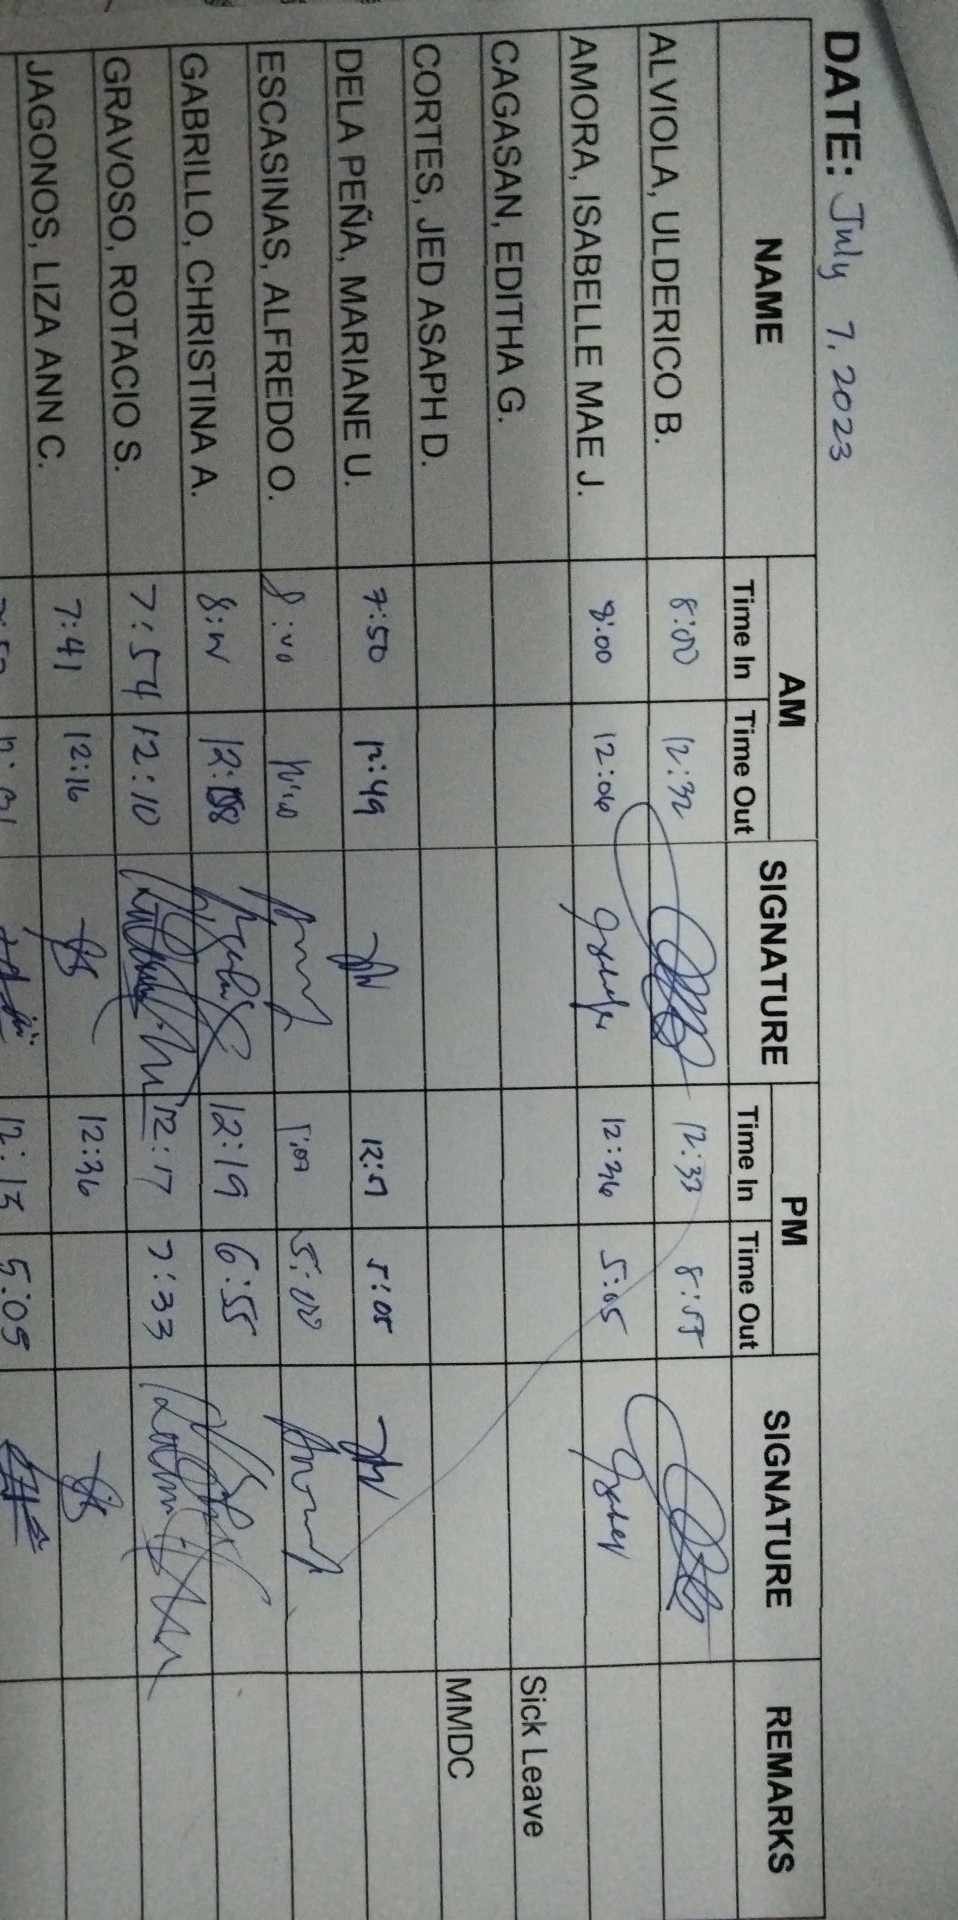 DATE: July 7, 2023
NAME AM SIGNATURE PM SIGNATURE REMARKS
Time In Time Out Time In Time Out
ALVIOLA, ULDERICO B. 8:00 12:32 12:33
AMORA, ISABELLE MAE J. 8:00 12:06 12:36 5:05
CAGASAN, EDITHA G. Sick Leave
CORTES, JED ASAPH D. MMDC
DELA PEÑA, MARIANE U. 7:50 12:49 5:05
ESCASINAS, ALFREDO O. 5:00
GABRILLO, CHRISTINA A. 12:19 6:55
GRAVOSO, ROTACIO S. 7:54 12:10 12:17 7:33
JAGONOS, LIZA ANN C. 7:41 12:16 12:36
12:13 5:09